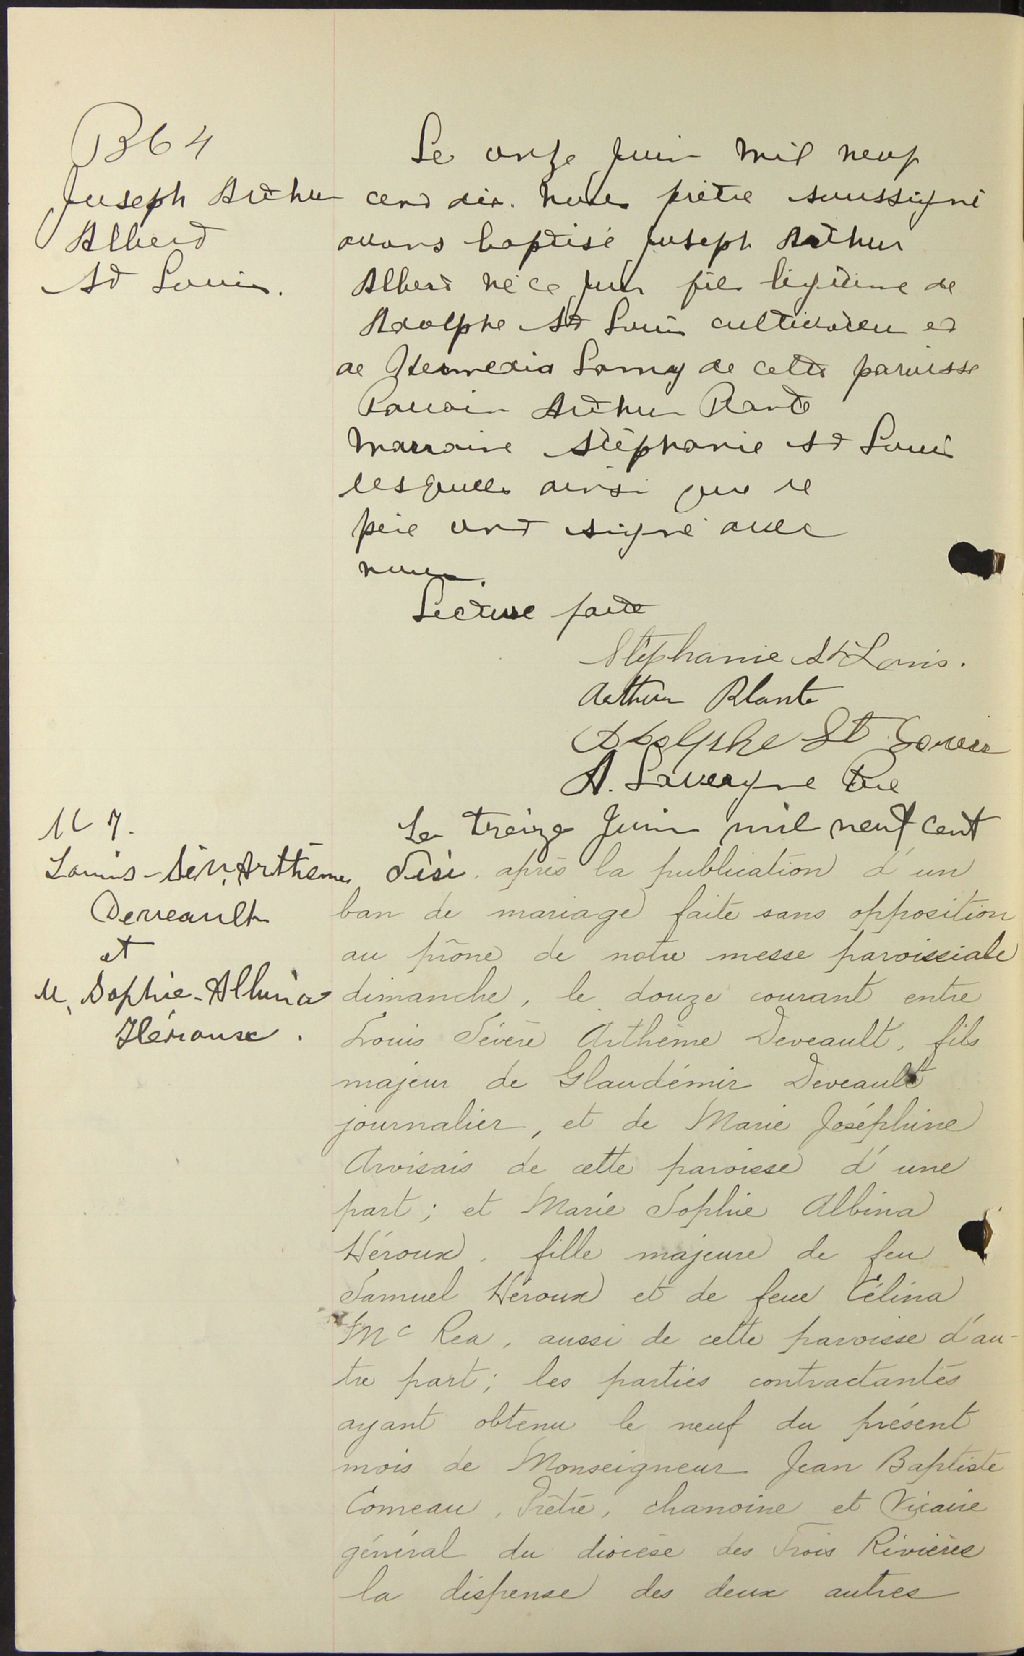 B 64
Joseph Arthur
Albert
St Louis.
Le onze juin mil neuf
cent dix. nous prêtre soussigné
avons baptisé Joseph Arthur
Albert né ce jour fils légitime de
Adolphe St Louis cultivateur et
de Lamy de cette paroisse
Parrain Arthur Plante
Marraine Stéphanie St Louis
lesquels ainsi que le
père ont signé avec
nous.
Lecture faite
Stéphanie St Louis.
Arthur Plante
Adolphe St Louis
A. Lavergne Ptre
M 7.
Louis-Sév. Arthême
Deveault
et
M. Sophie-Albina
Héroux.
Le treize Juin mil neuf cent
dix, après la publication d'un
ban de mariage faite sans opposition
au prône de notre messe paroissiale
dimanche, le douze courant entre
Louis Sévère Arthème Deveault, fils
majeur de Glaudémir Deveault
journalier, et de Marie Joséphine
Arvisais de cette paroisse d'une
part; et Marie Sophie Albina
Héroux, fille majeure de feu
Samuel Héroux et de feue Célina
Mc Rea, aussi de cette paroisse d'au-
tre part; les parties contractantes
ayant obtenu le neuf du présent
mois de Monseigneur Jean Baptiste
Comeau, Prêtre, chanoine et Vicaire
général du diocèse des Trois Rivières
la dispense des deux autres